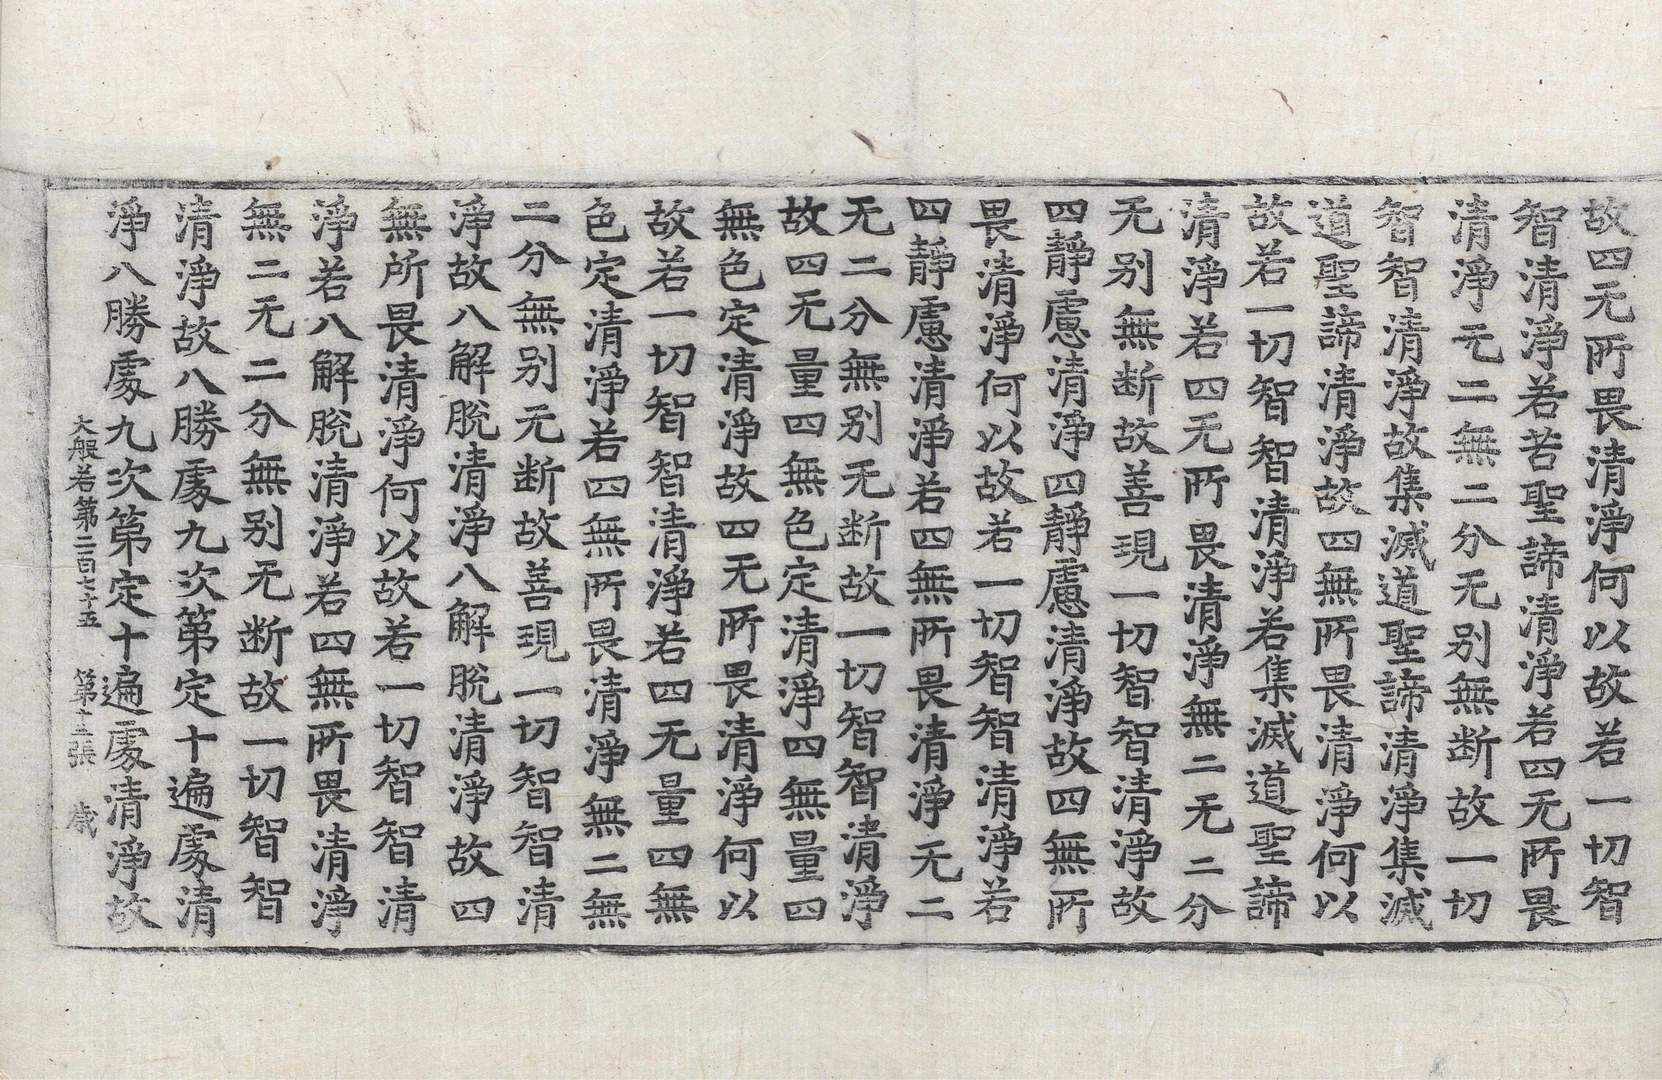 故四无所畏清淨何以故若一切智
智清淨若苦聖諦清淨若四无所畏
清淨无二無二分无别無断故一切
智智清淨故集滅道聖諦清淨集滅
道聖諦清淨故四無所畏清淨何以
故若一切智智清淨若集滅道聖諦
清淨若四无所畏清淨無二无二分
无别無断故善現一切智智清淨故
四靜慮清淨四靜慮清淨故四無所
畏清淨何以故若一切智智清淨若
四靜慮清淨若四無所畏清淨无二
无二分無别无断故一切智智清淨
故四无量四無色定清淨四無量四
無色定清淨故四无所畏清淨何以
故若一切智智清淨若四无量四無
色定清淨若四無所畏清淨無二無
二分無别无断故善現一切智智清
淨故八解脫清淨八解脫清淨故四
無所畏清淨何以故若一切智智清
淨若八解脫清淨若四無所畏清淨
無二无二分無别无断故一切智智
清淨故八勝處九次第定十遍處清
淨八勝處九次第定十遍處清淨故
大般若第二百七十五 第十二張 歲